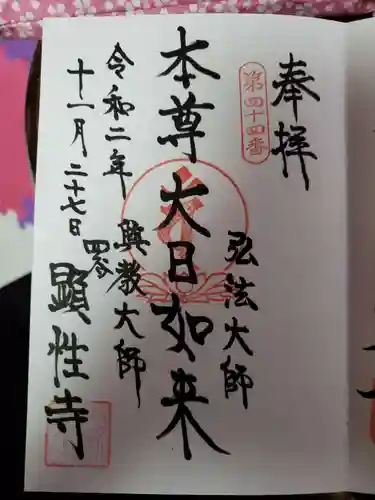 奉拝
第四十四番
弘法大師
本尊大日如来
興教大師
令和二年
十一月二十七日
顕性寺